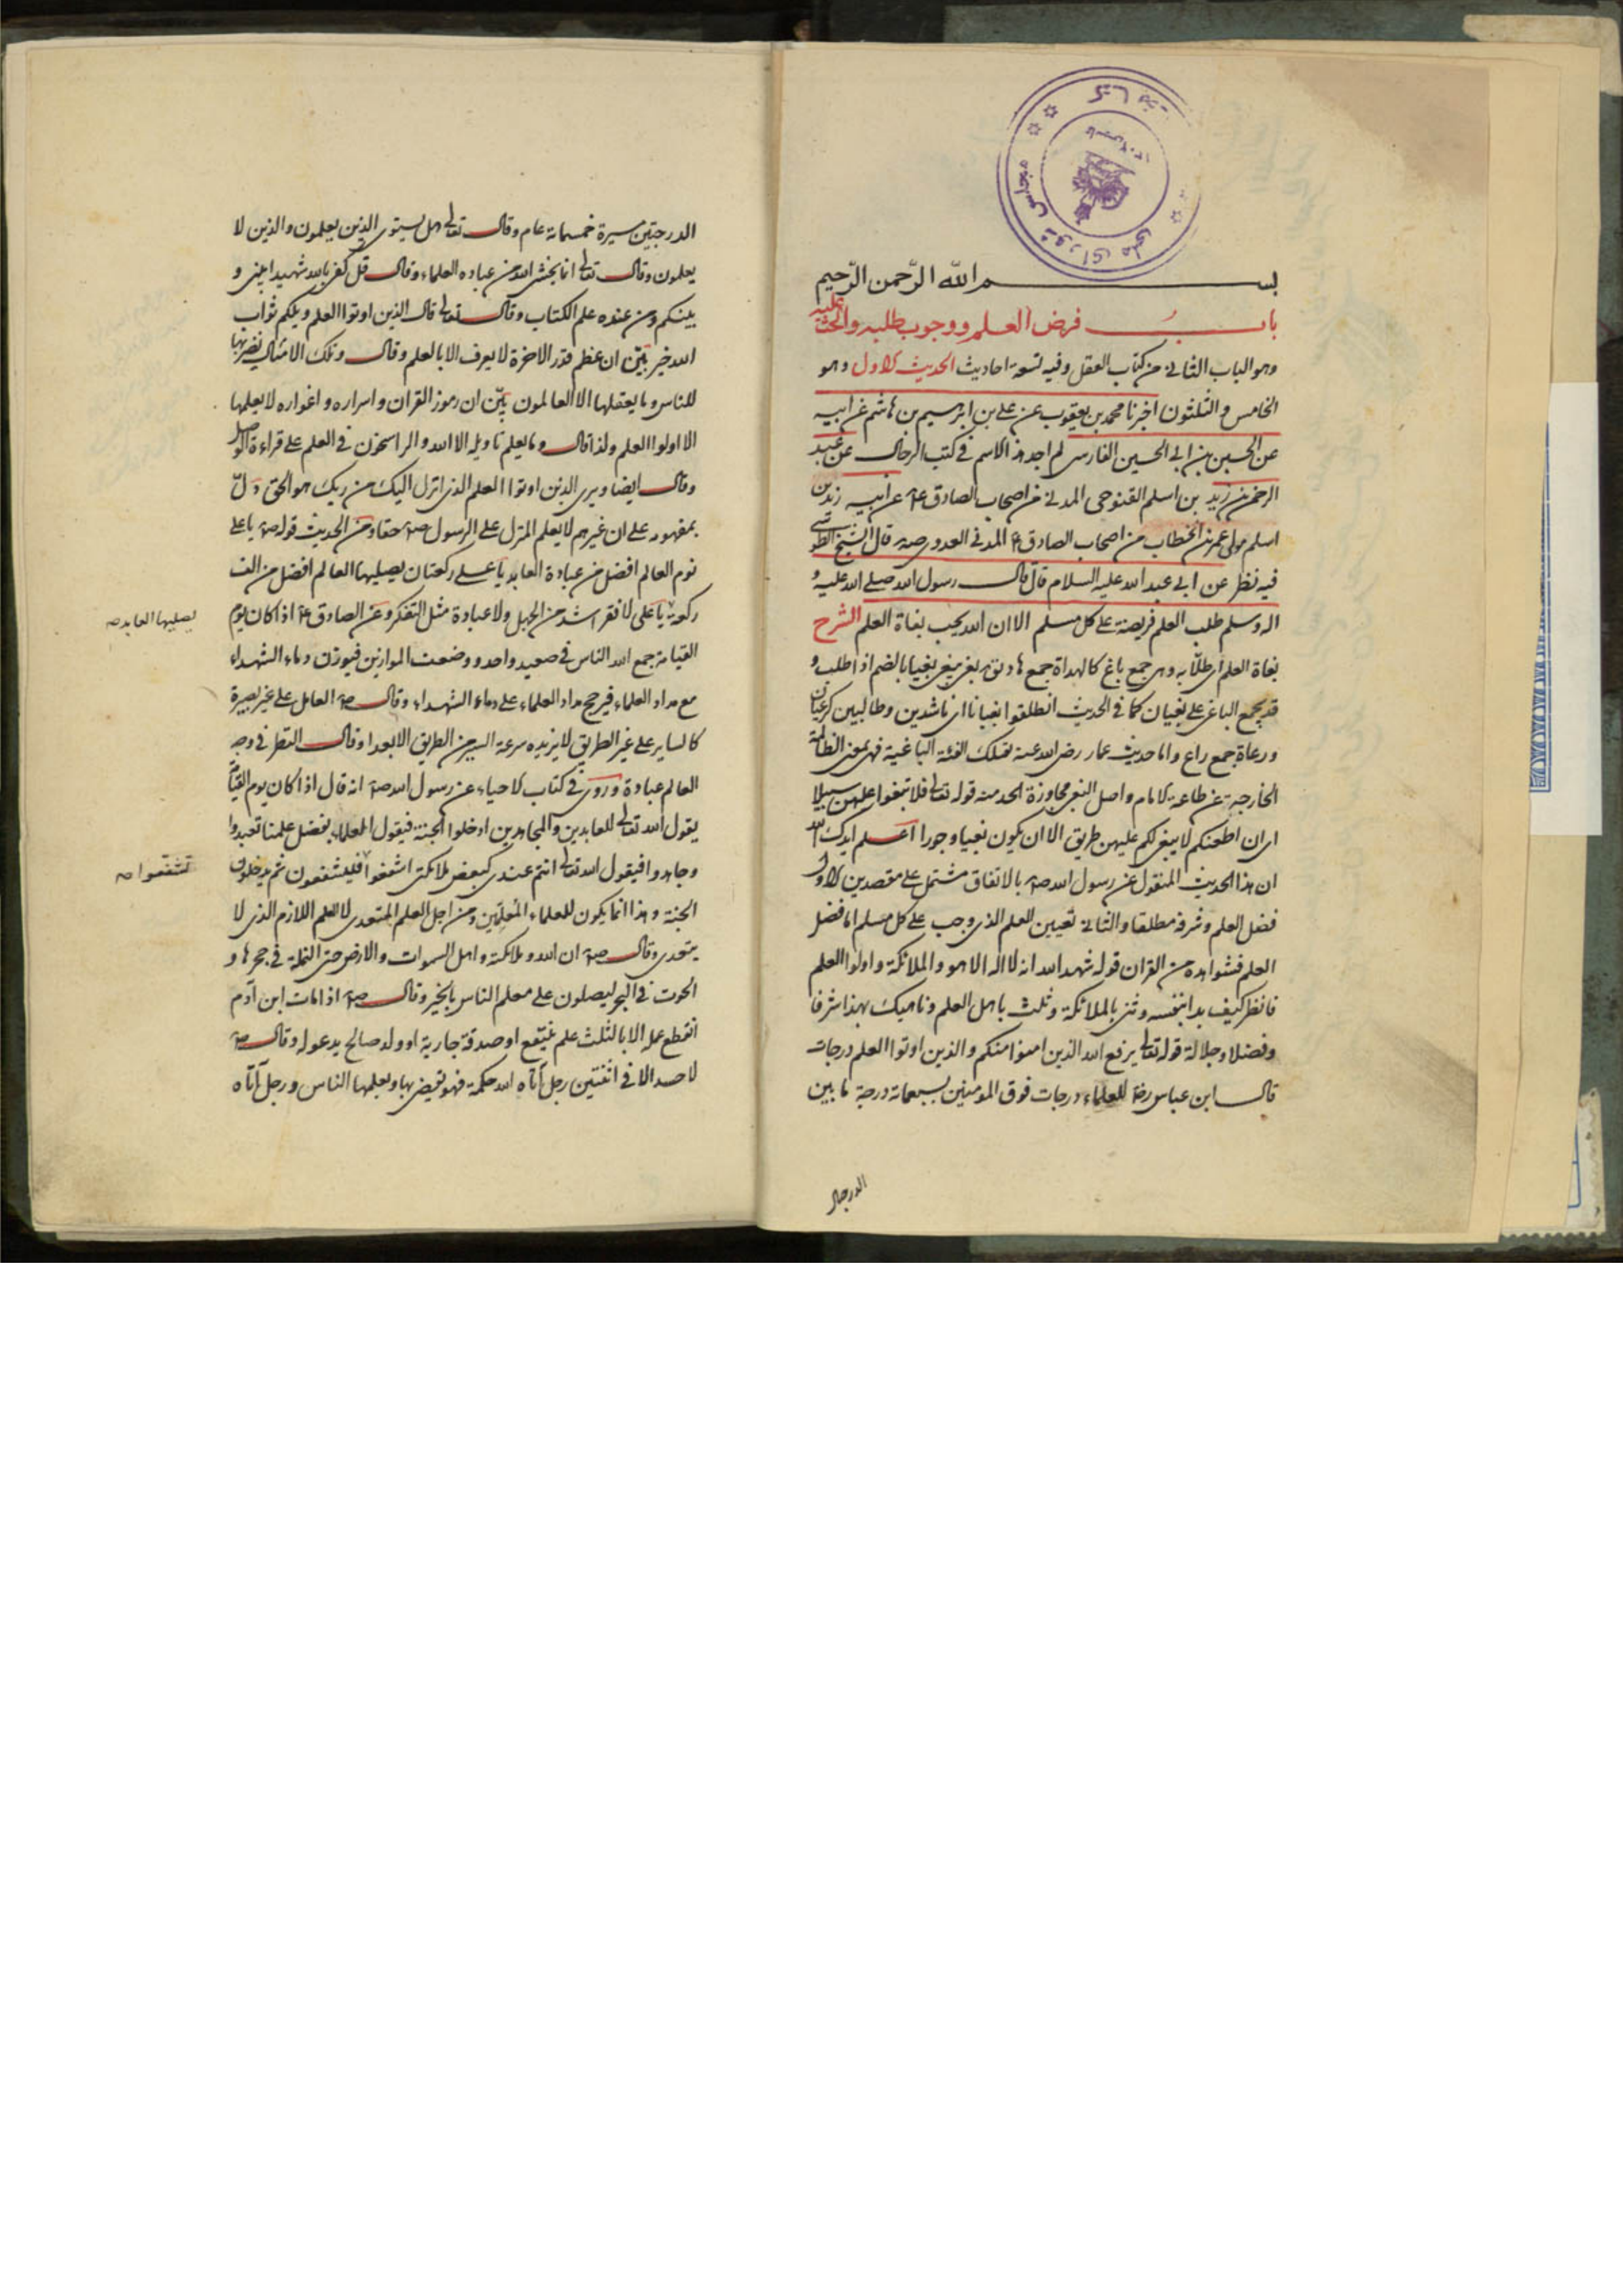 بسم الله الرّحمن الرّحيم
باب فرض العلم ووجوب طلبه والحث عليه
وهو الباب الثاني من كتاب العقل وفيه تسعة احاديث الحديث الاول وهو
الخامس والثلثون اخبرنا محمد بن يعقوب عن علي بن ابرهيم بن هاشم عن ابيه
عن الحسين بن ابي الحسين الفارسي لم اجد هذا الاسم في كتب الرجال عن عبد
الرحمن بن زيد بن اسلم التنوخي المدني من اصحاب الصادق ع عن ابيه زيد بن
اسلم مولى عمر بن الخطاب من اصحاب الصادق ع المدني العدوي قال الشيخ الطوسي
فيه نظر عن ابي عبد الله عليه السلام قال قال رسول الله صلى الله عليه و
اله وسلم طلب العلم فريضة على كل مسلم الا ان الله يحب بغاة العلم الشرح
بغاة العلم اى طلّابه وهى جمع باغ كالهداة جمع هاد يق بغى يبغى بغيا بالضم اذا طلب و
قد يجمع الباغى على بغيان كما في الحديث انطلقوا بغيانا اى ناشدين وطالبين كرعيان
ورعاة جمع راع واما حديث عمار رضى الله عنه تقتلك الفئة الباغية فهى بمعنى الظالمة
الخارجة عن طاعة الامام واصل البغى مجاوزة الحد منه قوله تعالى فلا تبغوا عليهن سبيلا
اى ان اطعنكم لا يبقى لكم عليهن طريق الا ان يكون بغيا وجورا اعلم ايدك الله
ان هذا الحديث المنقول عن رسول الله ص بالاتفاق مشتمل على مقصدين الاول
فضل العلم وشرفه مطلقا والثاني تعيين العلم الذى وجب على كل مسلم اما فضل
العلم فشواهده من القران قوله شهد الله انه لا اله الا هو والملائكة واولوا العلم
فانظر كيف بدا بنفسه وثنى بالملائكة وثلث باهل العلم وناهيك بهذا شرفا
وفضلا وجلالة قوله تعالى يرفع الله الذين امنوا منكم والذين اوتوا العلم درجات
قال ابن عباس رض للعلماء درجات فوق المومنين بسبعمائة درجة ما بين
الدرجتين
الدرجتين مسيرة خمسمائة عام وقال تعالى هل يستوى الذين يعلمون والذين لا
يعلمون وقال تعالى انما يخشى الله من عباده العلماء وقال قل كفى بالله شهيدا بينى و
بينكم ومن عنده علم الكتاب وقال تعالى قال الذين اوتوا العلم ويلكم ثواب
الله خير بيّن ان عظم قدر الاخرة لا يعرف الا بالعلم وقال وتلك الامثال نضربها
للناس وما يعقلها الا العالمون بيّن ان رموز القران واسراره واغواره لا يعلمها
الا اولوا العلم ولذا قال وما يعلم تاويله الا الله والراسخون في العلم على قراءة الوصل
وقال ايضا ويرى الذين اوتوا العلم الذى انزل اليك من ربك هو الحق دلّ
بمفهومه على ان غيرهم لا يعلم المنزل على الرسول ص حقا ومن الحديث قوله ص يا على
نوم العالم افضل من عبادة العابد يا على ركعتان يصليهما العالم افضل من الف
ركعة يا على لا فقر اشد من الجهل ولا عبادة مثل التفكر وعن الصادق ع اذا كان يوم
القيامة جمع الله الناس في صعيد واحد ووضعت الموازين فيوزن دماء الشهداء
مع مداد العلماء فيرجح مداد العلماء على دماء الشهداء وقال ص العامل على غير بصيرة
كالساير على غير الطريق لا يزيده سرعة السير من الطريق الا بعدا وقال النظر في وجه
العالم عبادة وروى في كتاب الاحياء عن رسول الله ص انه قال اذا كان يوم القيامة
يقول الله تعالى للعابدين والمجاهدين ادخلوا الجنة فيقول العلماء بفضل علمنا تعبدوا
وجاهدوا فيقول الله تعالى انتم عندى كبعض ملائكتى اشفعوا فليشفعون ثم يدخلون
الجنة وهذا انما يكون للعلماء المُعلمّين ومن اجل العلم المتعدى لا العلم اللازم الذى لا
يتعدى وقال ص ان الله وملائكته واهل السموات والارض حتى النملة في جحرها و
الحوت في البحر ليصلون على معلم الناس بالخير وقال ص اذا مات ابن آدم
انقطع عمله الا بالثلث علم ينتفع او صدقة جارية او ولد صالح يدعو له وقال ص
لا حسد الا في اثنتين رجل آتاه الله حكمة فهو يقضى بها ويعلمها الناس ورجل آتاه
يصليها العابد صح
تشفعوا صح